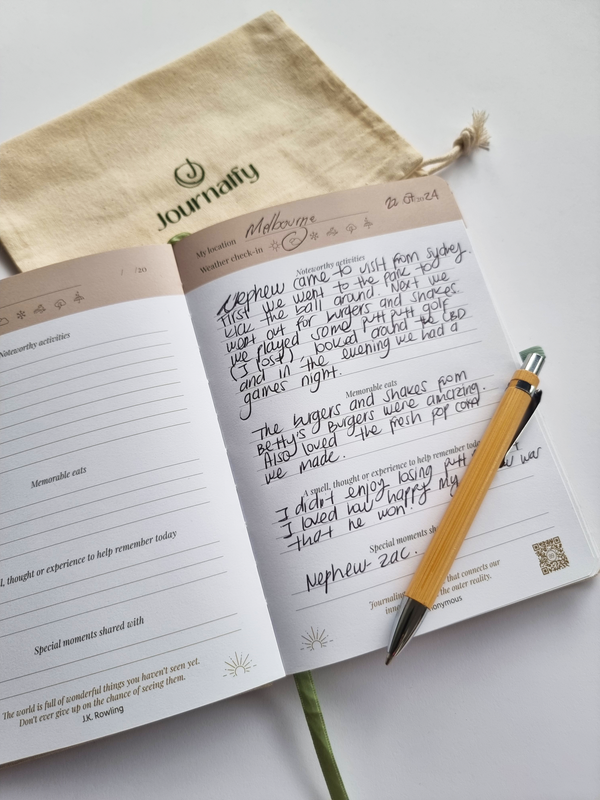 Journalfy
/ /20
Noteworthy activities
Memorable eats
l, thought or experience to help remember today
Special moments shared with
The world is full of wonderful things you haven't seen yet.
Don't ever give up on the chance of seeing them.
J.K. Rowling
My location Melbourne
22 07 2024
Weather check-in
Noteworthy activities
Nephew came to visit from Sydney.
First we went to the park to
kick the ball around. Next we
went out for burgers and shakes
we played some putt putt golf
(I lost), looked around the CBD
and in the evening we had a
games night.
Memorable eats
The burgers and shakes from
Betty's Burgers were amazing.
Also loved the fresh pop corn
we made.
A smell, thought or experience to help remember today
I didn't enjoy losing putt
I loved how happy my was
that he won!
Special moments sha
Nephew - Zac.
Journaling that connects our
inne the outer reality.
onymous